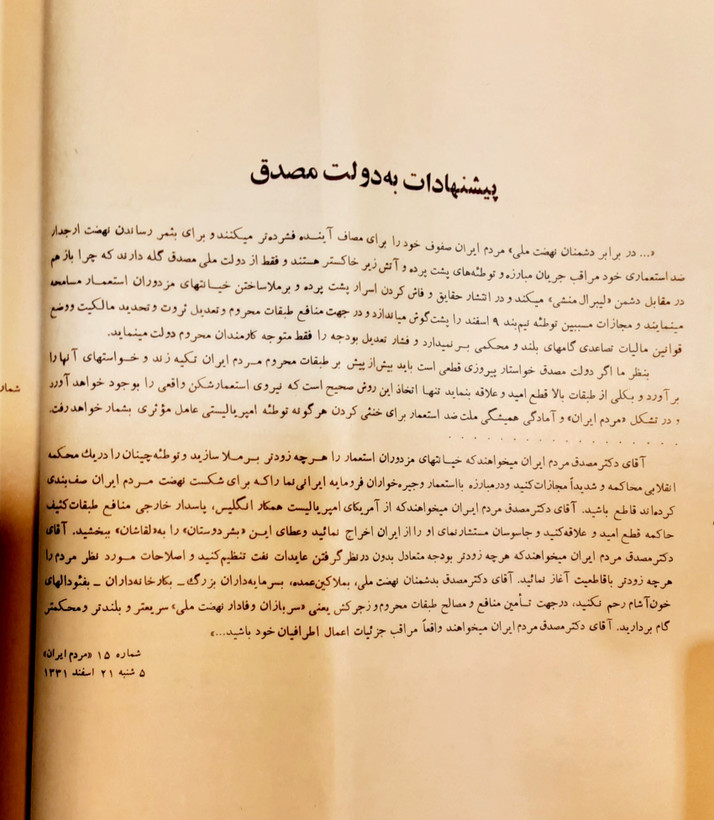 پیشنهادات به دولت مصدق
«... در برابر دشمنان نهضت ملی» مردم ایران صفوف خود را برای مصاف آینده فشرده‌تر میکنند و برای بثمر رساندن نهضت ارجدار
ضد استعماری خود مراقب جریان مبارزه و توطئه‌های پشت پرده و آتش زیر خاکستر هستند و فقط از دولت ملی مصدق گله دارند که چرا باز هم
در مقابل دشمن «لیبرال منشی» میکند و در انتشار حقایق و فاش کردن اسرار پشت پرده و برملا ساختن خیانتهای مزدوران استعمار مسامحه
مینمایند و مجازات مسببین توطئه نیم‌بند ۹ اسفند را پشت گوش میاندازد و در جهت منافع طبقات محروم و تعدیل ثروت و تحدید مالکیت و وضع
قوانین مالیات تصاعدی گامهای بلند و محکمی بر نمیدارد و فشار تعدیل بودجه را فقط متوجه کارمندان محروم دولت مینماید.
بنظر ما اگر دولت مصدق خواستار پیروزی قطعی است باید بیش از پیش بر طبقات محروم مردم ایران تکیه زند و خواستهای آنها را
بر آورد و بکلی از طبقات بالا قطع امید و علاقه بنماید تنها اتخاذ این روش صحیح است که نیروی استعمارشکن واقعی را بوجود خواهد آورد
و در تشکل «مردم ایران» و آمادگی همیشگی ملت ضد استعمار برای خنثی کردن هرگونه توطئه امپریالیستی عامل مؤثری بشمار خواهد رفت.
. . . . . . . . . . . . . . . .
آقای دکتر مصدق مردم ایران میخواهند که خیانتهای مزدوران استعمار را هرچه زودتر برملا سازید و توطئه‌چینان را در یک محکمه
انقلابی محاکمه و شدیداً مجازات کنید و در مبارزه با استعمار و جیره‌خواران فرومایه ایرانی نما را که برای شکست نهضت مردم ایران صف‌بندی
کرده‌اند قاطع باشید. آقای دکتر مصدق مردم ایران میخواهند که از آمریکای امپریالیست همکار انگلیس، پاسدار خارجی منافع طبقات کثیف
حاکمه قطع امید و علاقه کنید و جاسوسان مستشارنمای او را از ایران اخراج نمائید و عطای این «بشردوستان» را به «لقاشان» ببخشید. آقای
دکتر مصدق مردم ایران میخواهند که هرچه زودتر بودجه متعادل بدون در نظر گرفتن عایدات نفت تنظیم کنید و اصلاحات مورد نظر مردم را
هرچه زودتر باقاطعیت آغاز نمائید. آقای دکتر مصدق بدشمنان نهضت ملی، بملاکین عمده، بسرمایه‌داران بزرگ ــ بکارخانه‌داران ــ بفئودالهای
خون‌آشام رحم نکنید، درجهت تأمین منافع و مصالح طبقات محروم و زجرکش یعنی «سربازان وفادار نهضت ملی» سریعتر و بلندتر و محکمتر
گام بردارید. آقای دکتر مصدق مردم ایران میخواهند واقعاً مراقب جزئیات اعمال اطرافیان خود باشید...»
شماره ۱۵ «مردم ایران»
۵ شنبه ۲۱ اسفند ۱۳۳۱
شمار